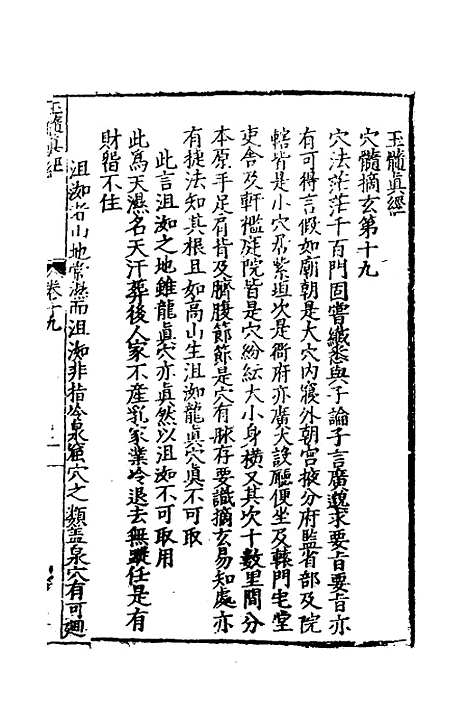 玉髓眞經
穴髓摘玄第十九
穴法茫茫千百門固嘗纖悉與子論子言廣邈求要旨要旨亦
有可得言假如廟朝是大穴內寢外朝宮掖分府監省部及院
轄皆是小穴居紫垣次是衙府亦廣大設廳便坐及轅門宅堂
吏舍及軒檻庭院皆是穴紛紜大小身橫又其次十數里間分
本原手足肩背及臍腹節節是穴有脉存要識摘玄易知處亦
有捷法知其根且如高山生沮洳龍眞穴眞不可取
此言沮洳之地雖龍眞穴亦眞然以沮洳不可取用
此爲天濕名天汗葬後人家不產乳家業冷退去無蹤任是有
財畱不住
沮洳者山地常濕而沮洳非指冷泉窟穴之類蓋泉穴有可廻
玉髓眞經
卷十九